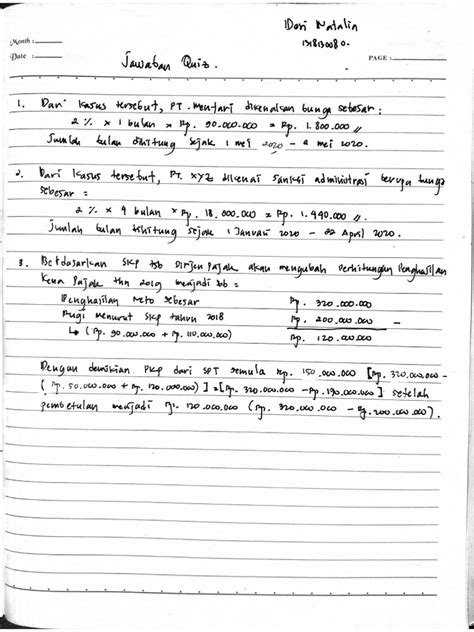 Dori Natalin
1318130080.
Month :
Date :
PAGE :
Jawaban Quiz.
1. Dari kasus tersebut, PT. Mentari dikenakan bunga sebesar :
2 % x 1 bulan x Rp. 90.000.000 = Rp. 1.800.000 //
Jumlah bulan dihitung sejak 1 mei 2020 - 2 mei 2020.
2. Dari kasus tersebut, PT. XYZ dikenai sanksi administrasi berupa bunga
sebesar =
2 % x 4 bulan x Rp. 18.000.000 = Rp. 1.440.000 //.
Jumlah bulan dihitung sejak 1 Januari 2020 - 22 April 2020.
3. Berdasarkan SKP tsb Dirjen Pajak akan mengubah perhitungan Penghasilan
kena Pajak thn 2019 menjadi sbb =
Penghasilan Neto sebesar Rp. 320.000.000
Rugi menurut SKP tahun 2018 Rp. 200.000.000 -
↳ (Rp. 90.000.000 + Rp. 110.000.000) Rp. 120.000.000
Dengan demikian PKP dari SPT semula Rp. 150.000.000 [Rp. 320.000.000 -
(Rp. 50.000.000 + Rp. 120.000.000)] = [Rp. 320.000.000 - Rp. 170.000.000] setelah
pembetulan menjadi Rp. 120.000.000 (Rp. 320.000.000 - Rp. 200.000.000).